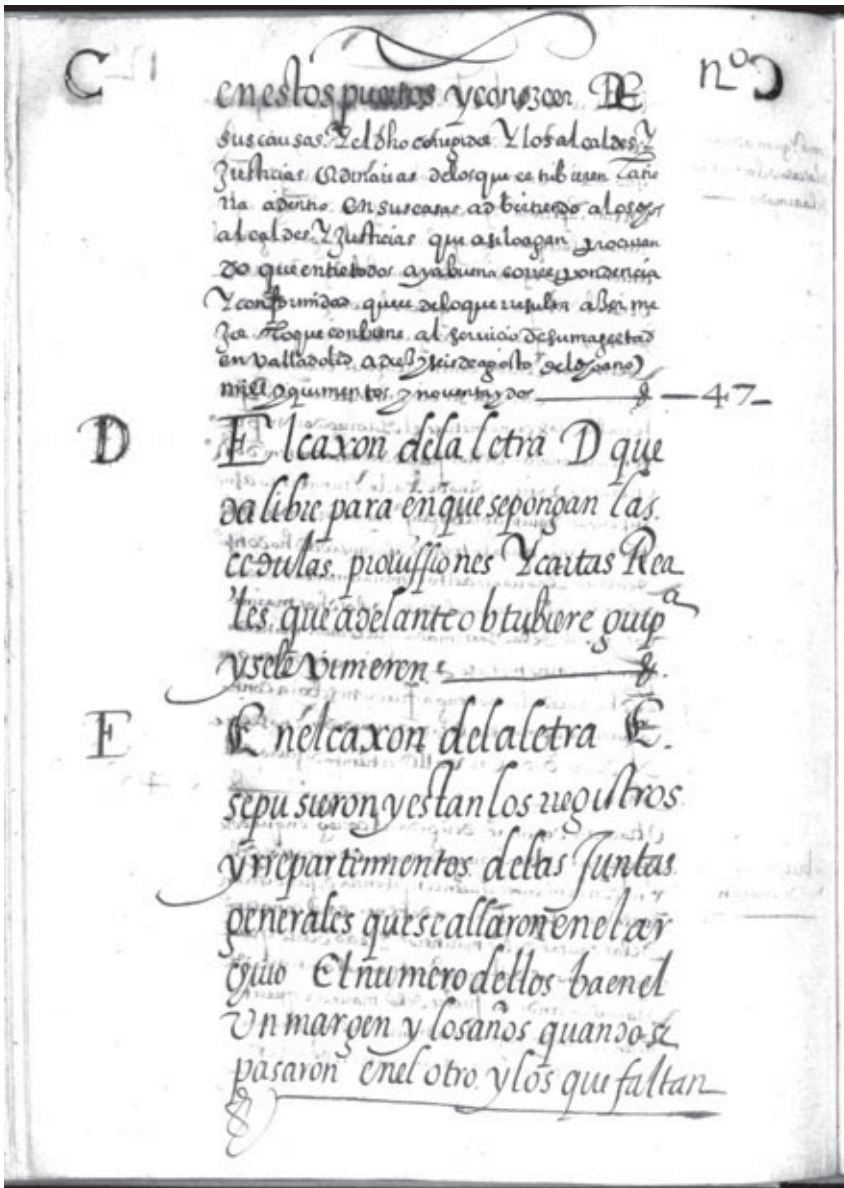 C
nº
en estos puertos y conozcer DE
sus causas. Y el dho corregidor Y los alcaldes Y
Justicias ordinarias de los que
rra adentro en sus casas advirtiendo a los
alcaldes Y Justicias que asi lo agan procuran
do que entre todos aya buena correspondencia
Y conformidad que de lo que
que conbiene al servicio de su magestad
en Valladolid a diez y seis de agosto
mill y quinientos y noventa y dos 47
D
El caxon de la letra D que
da libre para en que se pongan las
cedulas. provissiones Y cartas Rea
les que adelante obtubiere guipª
y se le vinieren
E
En el caxon de la letra E.
se pusieron y estan los registros
y rrepartimientos de las Juntas
generales que se allaron en el ar
chiuo El numero dellos ba en el
Un margen y los años quando se
pasaron en el otro. y los que faltan